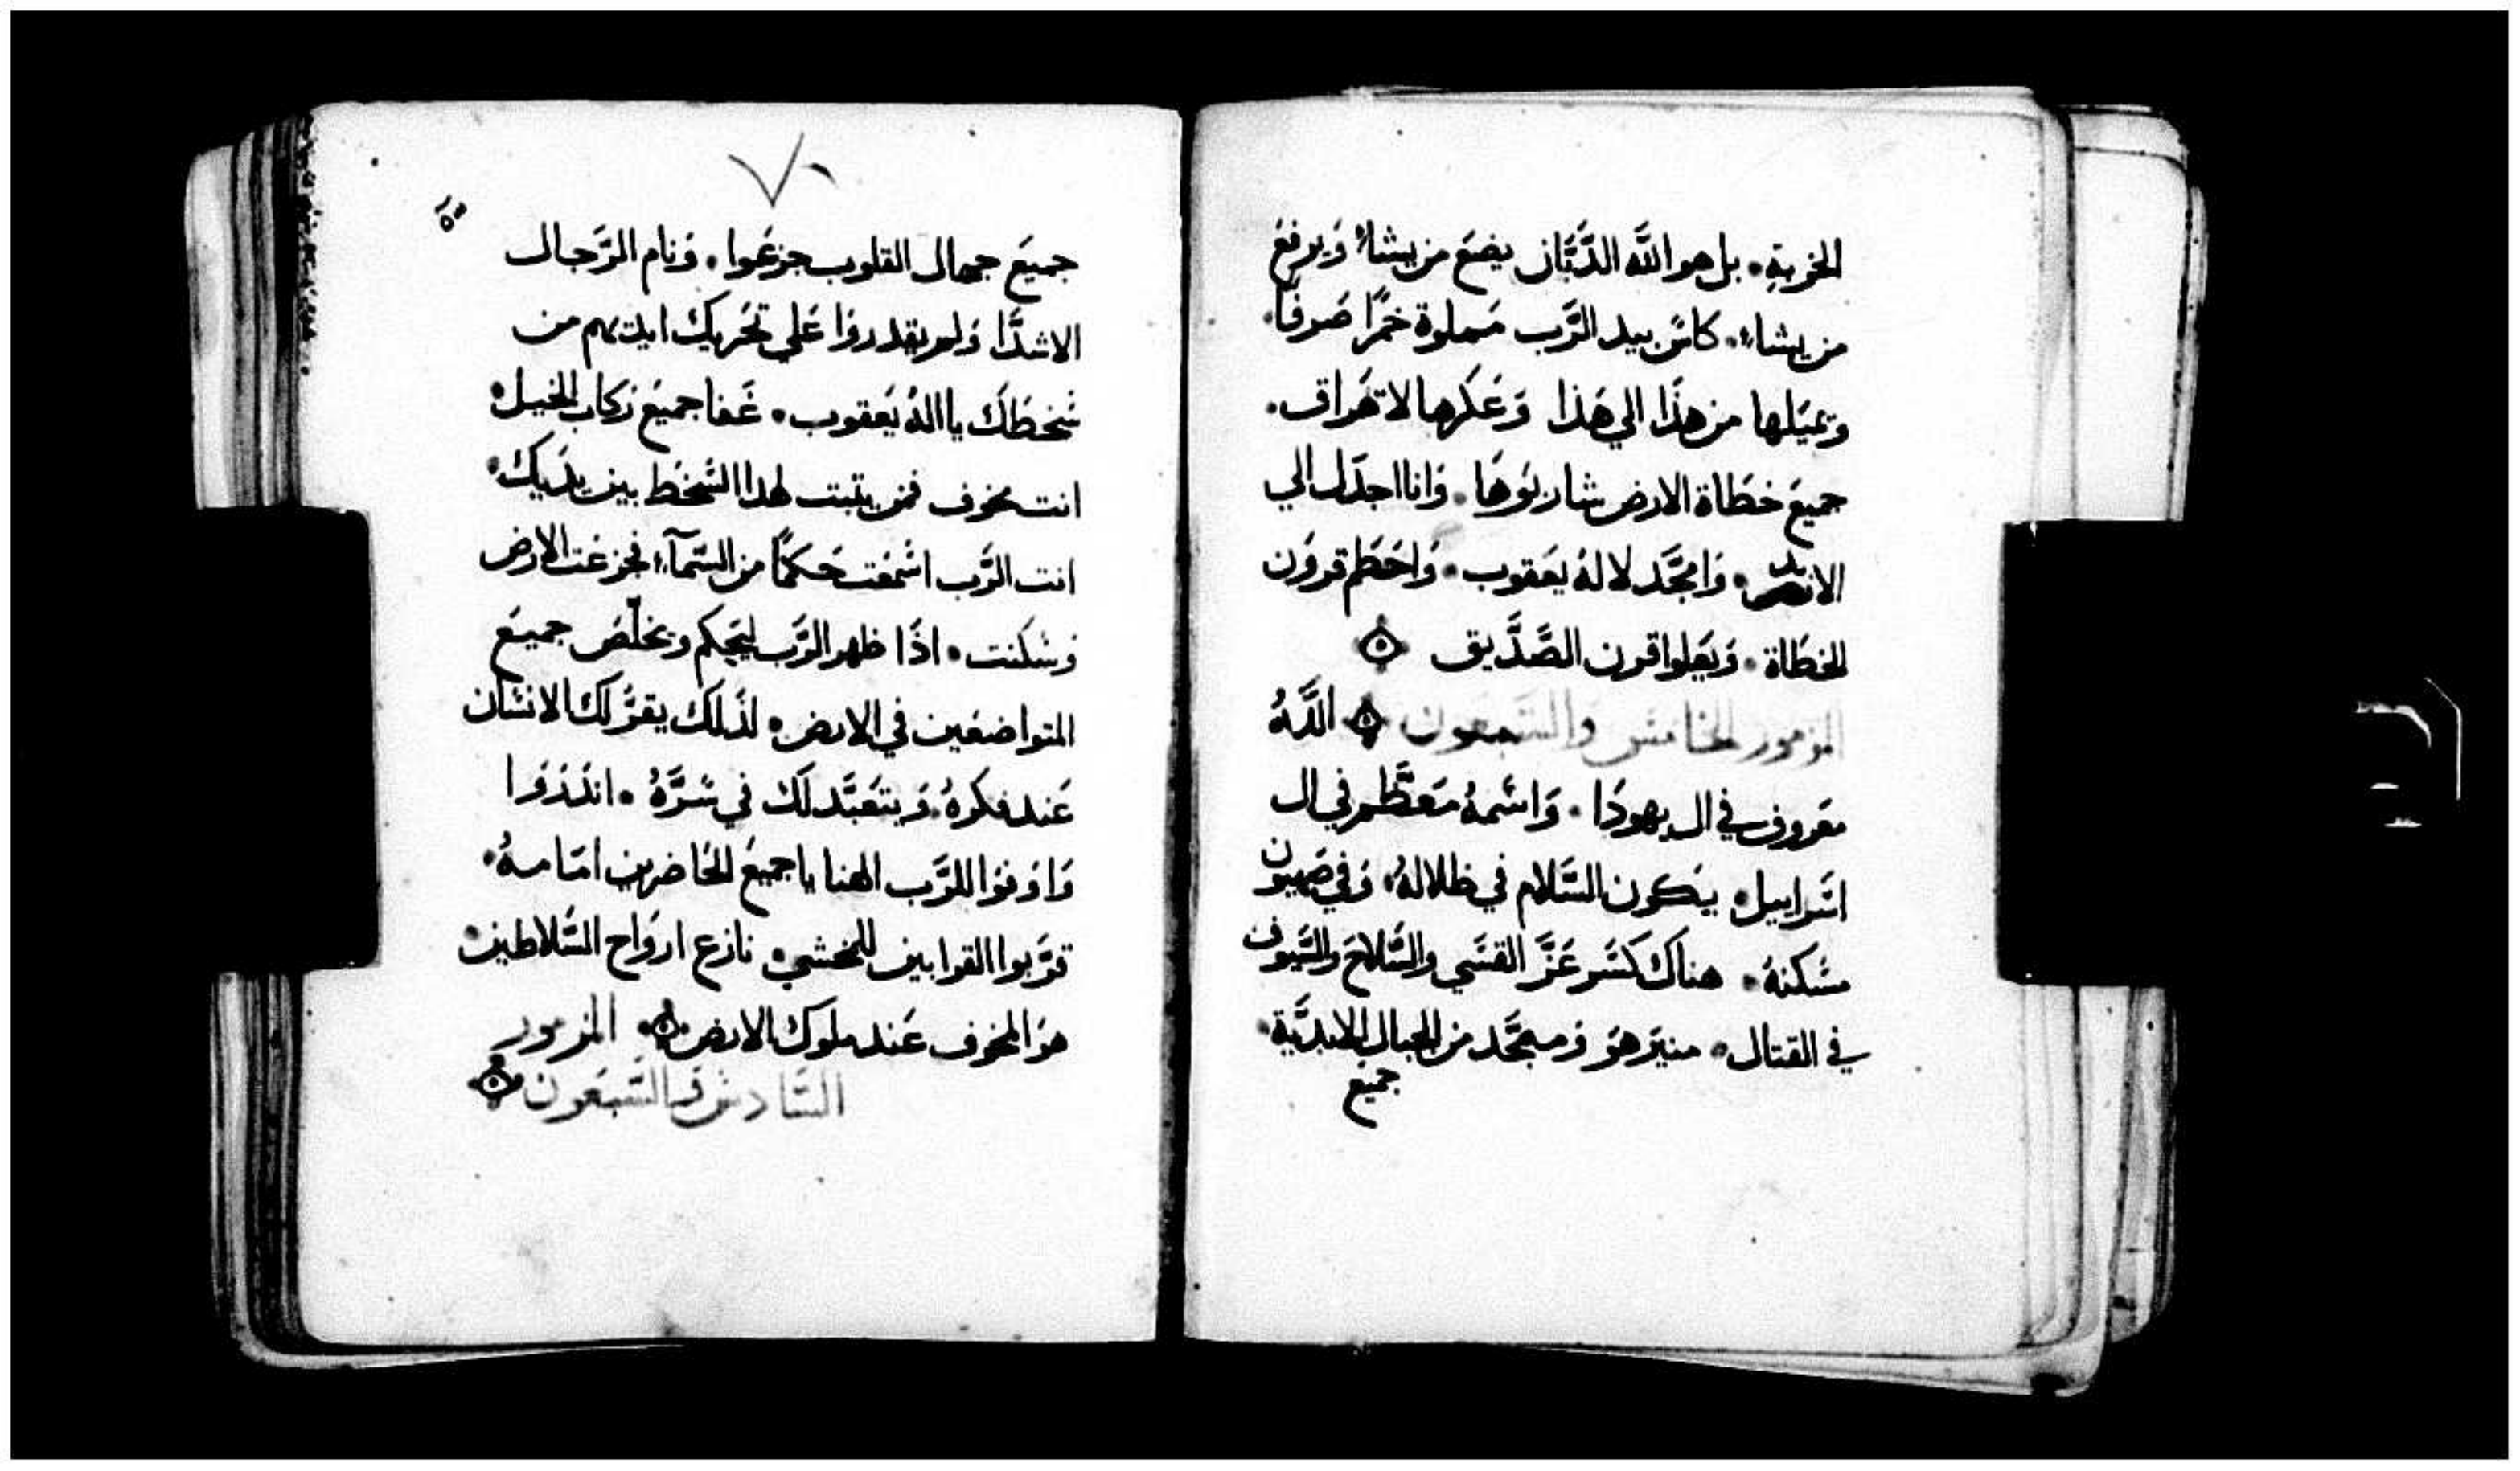 الخربة. بل هو اللَّه الدَّيَّان يضع من يشاء وَيرفع
من يشاء. كاس بيد الرَّب مَملوة خمرًا صَرفًا.
وَيميَلها من هذَا الي هَذا وَعَكرها لا تهَراق.
جميعَ خطَاة الارض شاربُوهَا. وَانا اجدَل الي
الابد. وَامجَّد لالهُ يعَقوب. وَاحَطم قروَن
الخطَاة. وَيَعلوا قرن الصَّدَّيق
المزمور الخامس وَالسَّبعون اللَّهُ
معَروف في ال يهودَا. وَاسمهُ مَعظَّم في ال
اسَرايل. يَكون السَّلام في ظلالهُ. وَفي صَهيون
مسَكنهُ. هناك كسَر عَزَّ القسَي والسَّلاحَ والسَّيوف
في القتال. منيَر هوَ وَممجَّد من الجبال الابديَّة.
جميع
٧٠
جميَع جهال القلوب جزعَوا. وَنام الرَّجال
الاشدَّا وَلم يقدروَا عَلي تحَريك ايديهم من
سَخطَك يا الهُ يَعقوب. غَفا جميَع رَكاب الخيل.
انت مخوف فمن يثبت لهذا السَّخَط بين يدَيك.
انت الرَّب اسمَعَت حَكمًا من السَّمآء فجزعَت الارض
وَسكنت. اذَا ظهر الرَّب ليَحكم ويخلّصَ جميَع
المتواضعَين في الارض. لذَلك يقرَّ لك الانسَان
عَند فكرهُ. وَيتعَبَّد لَك في سَرَّهُ. انذرَوا
وَاوَفوَا للرَّب الهنا يا جميعَ الحَاضرين امَامهُ.
قرَّبوا القرابين للمخشي. نازع اروَاح السَّلاطين.
هوَ المخوف عَند ملوك الارض. المزمور
السَّادس وَالسَّبعَون